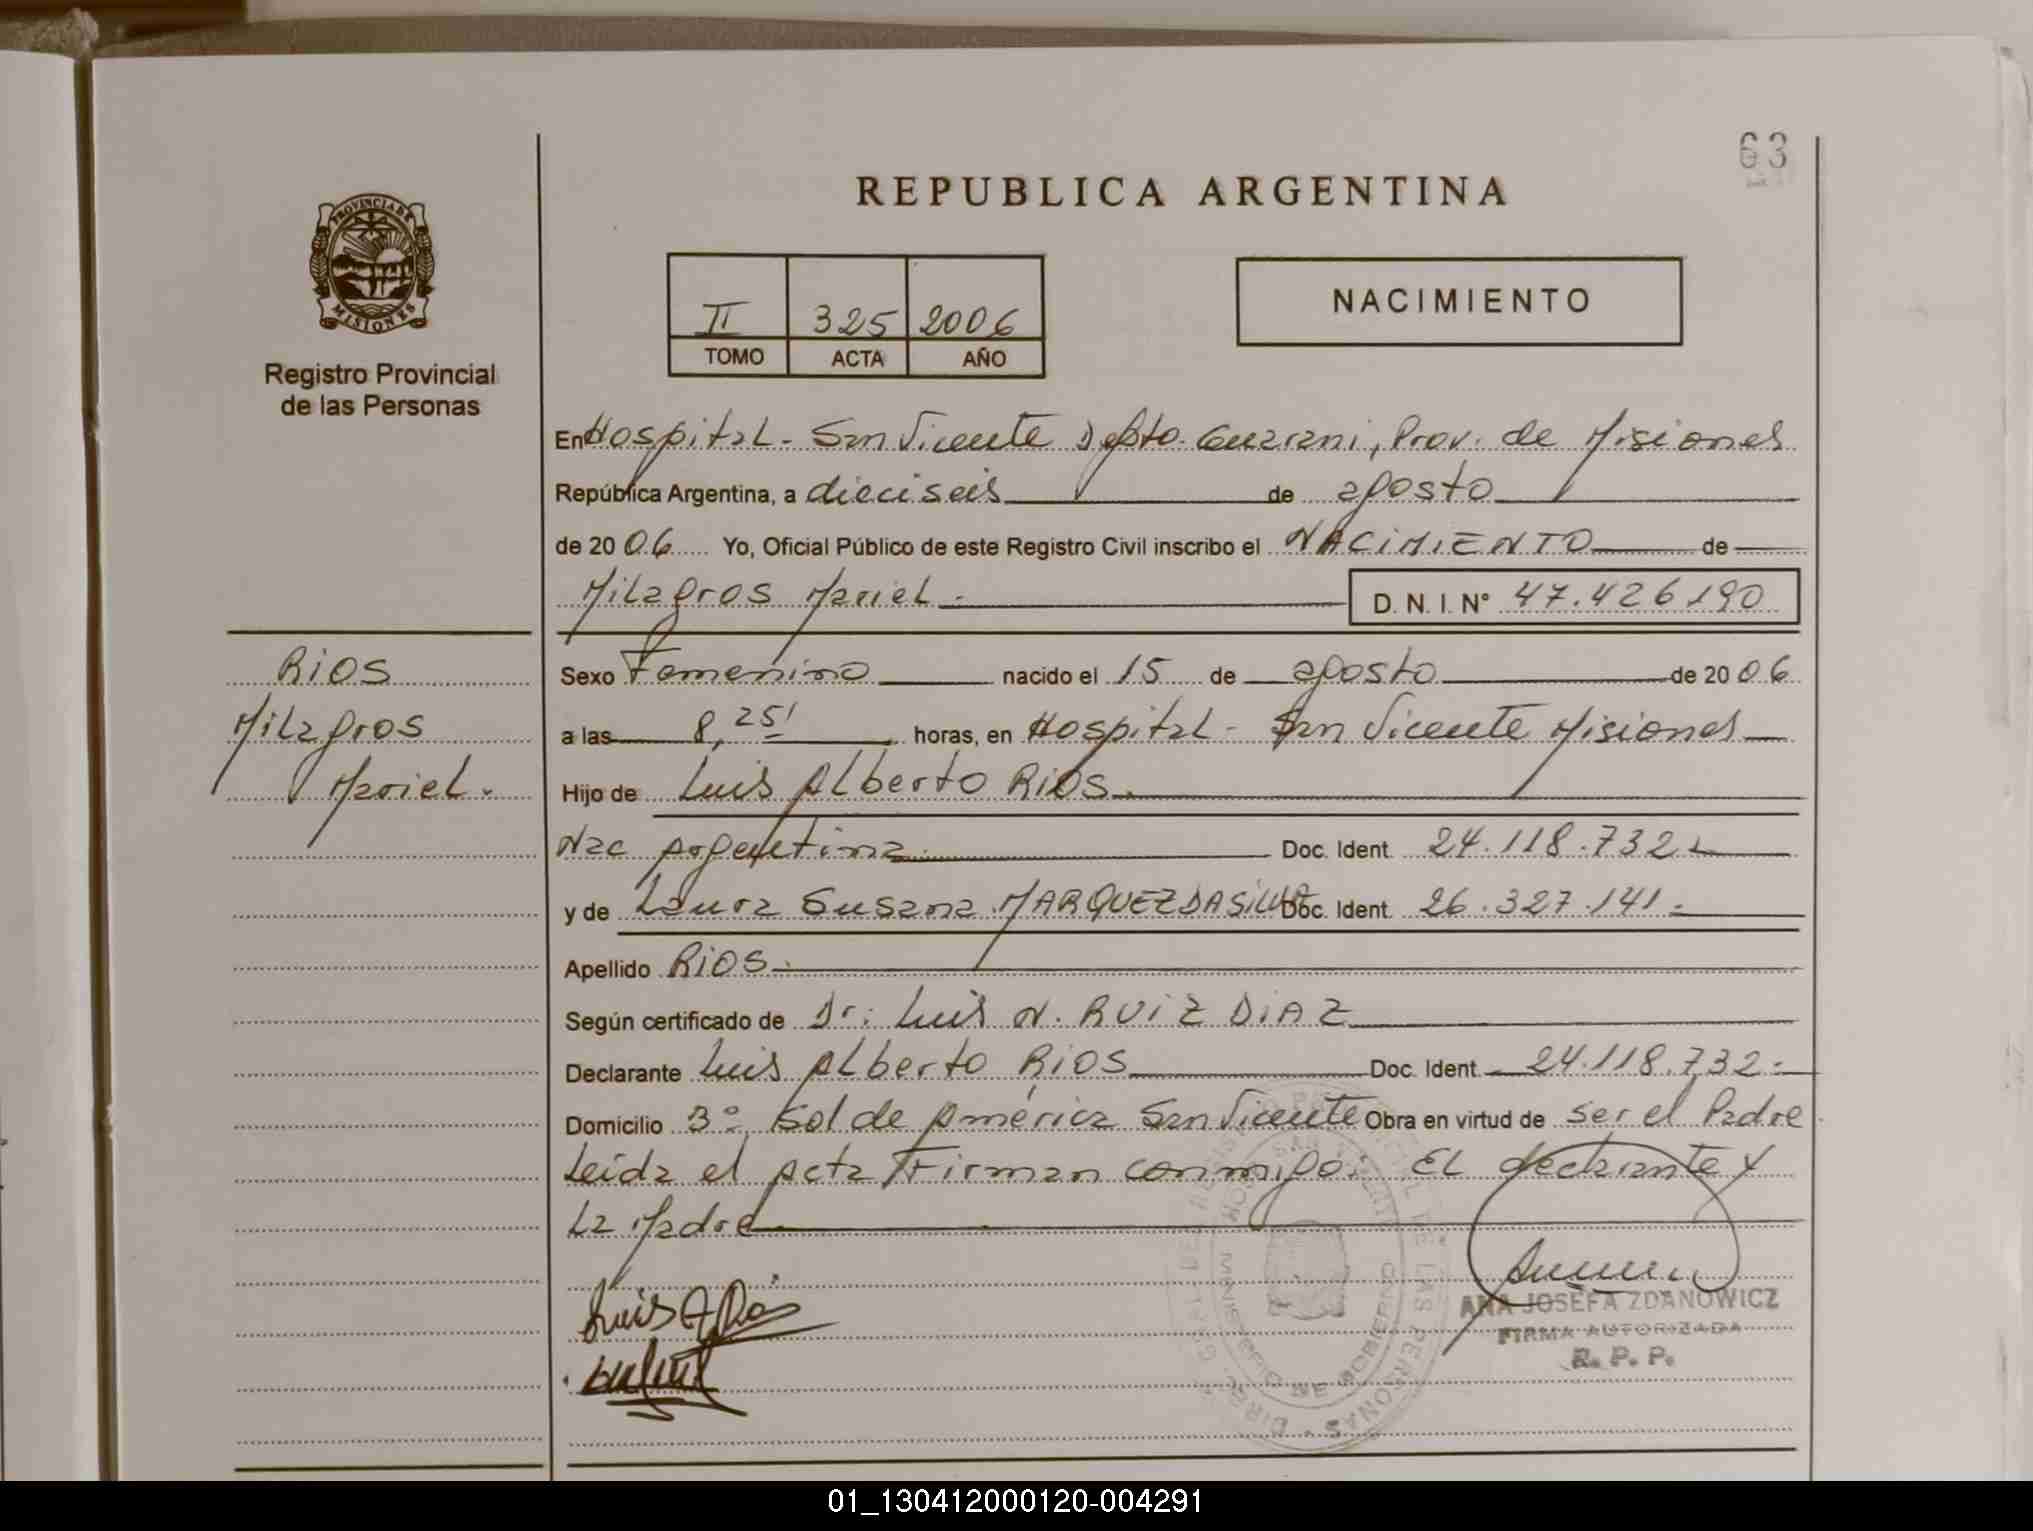 63
REPUBLICA ARGENTINA
PROVINCIA DE
MISIONES
Registro Provincial
de las Personas
II 325 2006
TOMO ACTA AÑO
NACIMIENTO
En Hospital - San Vicente Dpto. Guarani, Prov. de Misiones
República Argentina, a dieciseis de agosto
de 2006 Yo, Oficial Público de este Registro Civil inscribo el NACIMIENTO de
Milagros Mariel. D. N. I. N° 47.426190
RIOS
Milagros
Mariel.
Sexo Femenino nacido el 15 de agosto de 2006
a las 8,25' horas, en Hospital - San Vicente Misiones
Hijo de Luis Alberto RIOS.
Nac Argentina Doc. Ident. 24.118.732
y de Laura Susana MARQUEZ DA SILVA Doc. Ident. 26.327.141.
Apellido RIOS.
Según certificado de Dr: Luis N. RUIZ DIAZ
Declarante Luis Alberto RIOS Doc. Ident. 24.118.732
Domicilio 3° Sol de América San Vicente Obra en virtud de ser el Padre
Leida el Acta Firman conmigo: El declarante y
La Madre
Luis A Rios
ANA JOSEFA ZDANOWICZ
FIRMA AUTORIZADA
R. P. P.
01_130412000120-004291